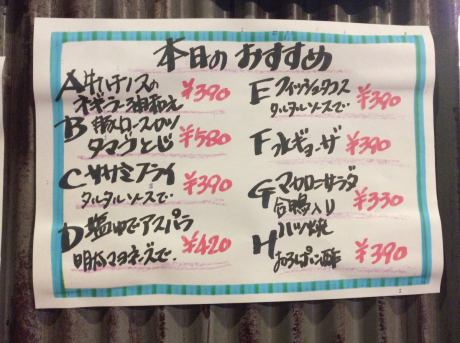 本日のおすすめ
A牛ハチノスの
ネギラー油和え ¥390
B豚ロースカツ
タマゴとじ ¥580
Cササミフライ
タルタルソースで ¥390
D塩ゆでアスパラ
明太マヨネーズで ¥420
Eフィッシュタコス
タルタルソースで ¥390
F水ギョーザ ¥390
Gマカロニサラダ
合鴨入り ¥330
Hハツ焼
おろしポン酢 ¥390